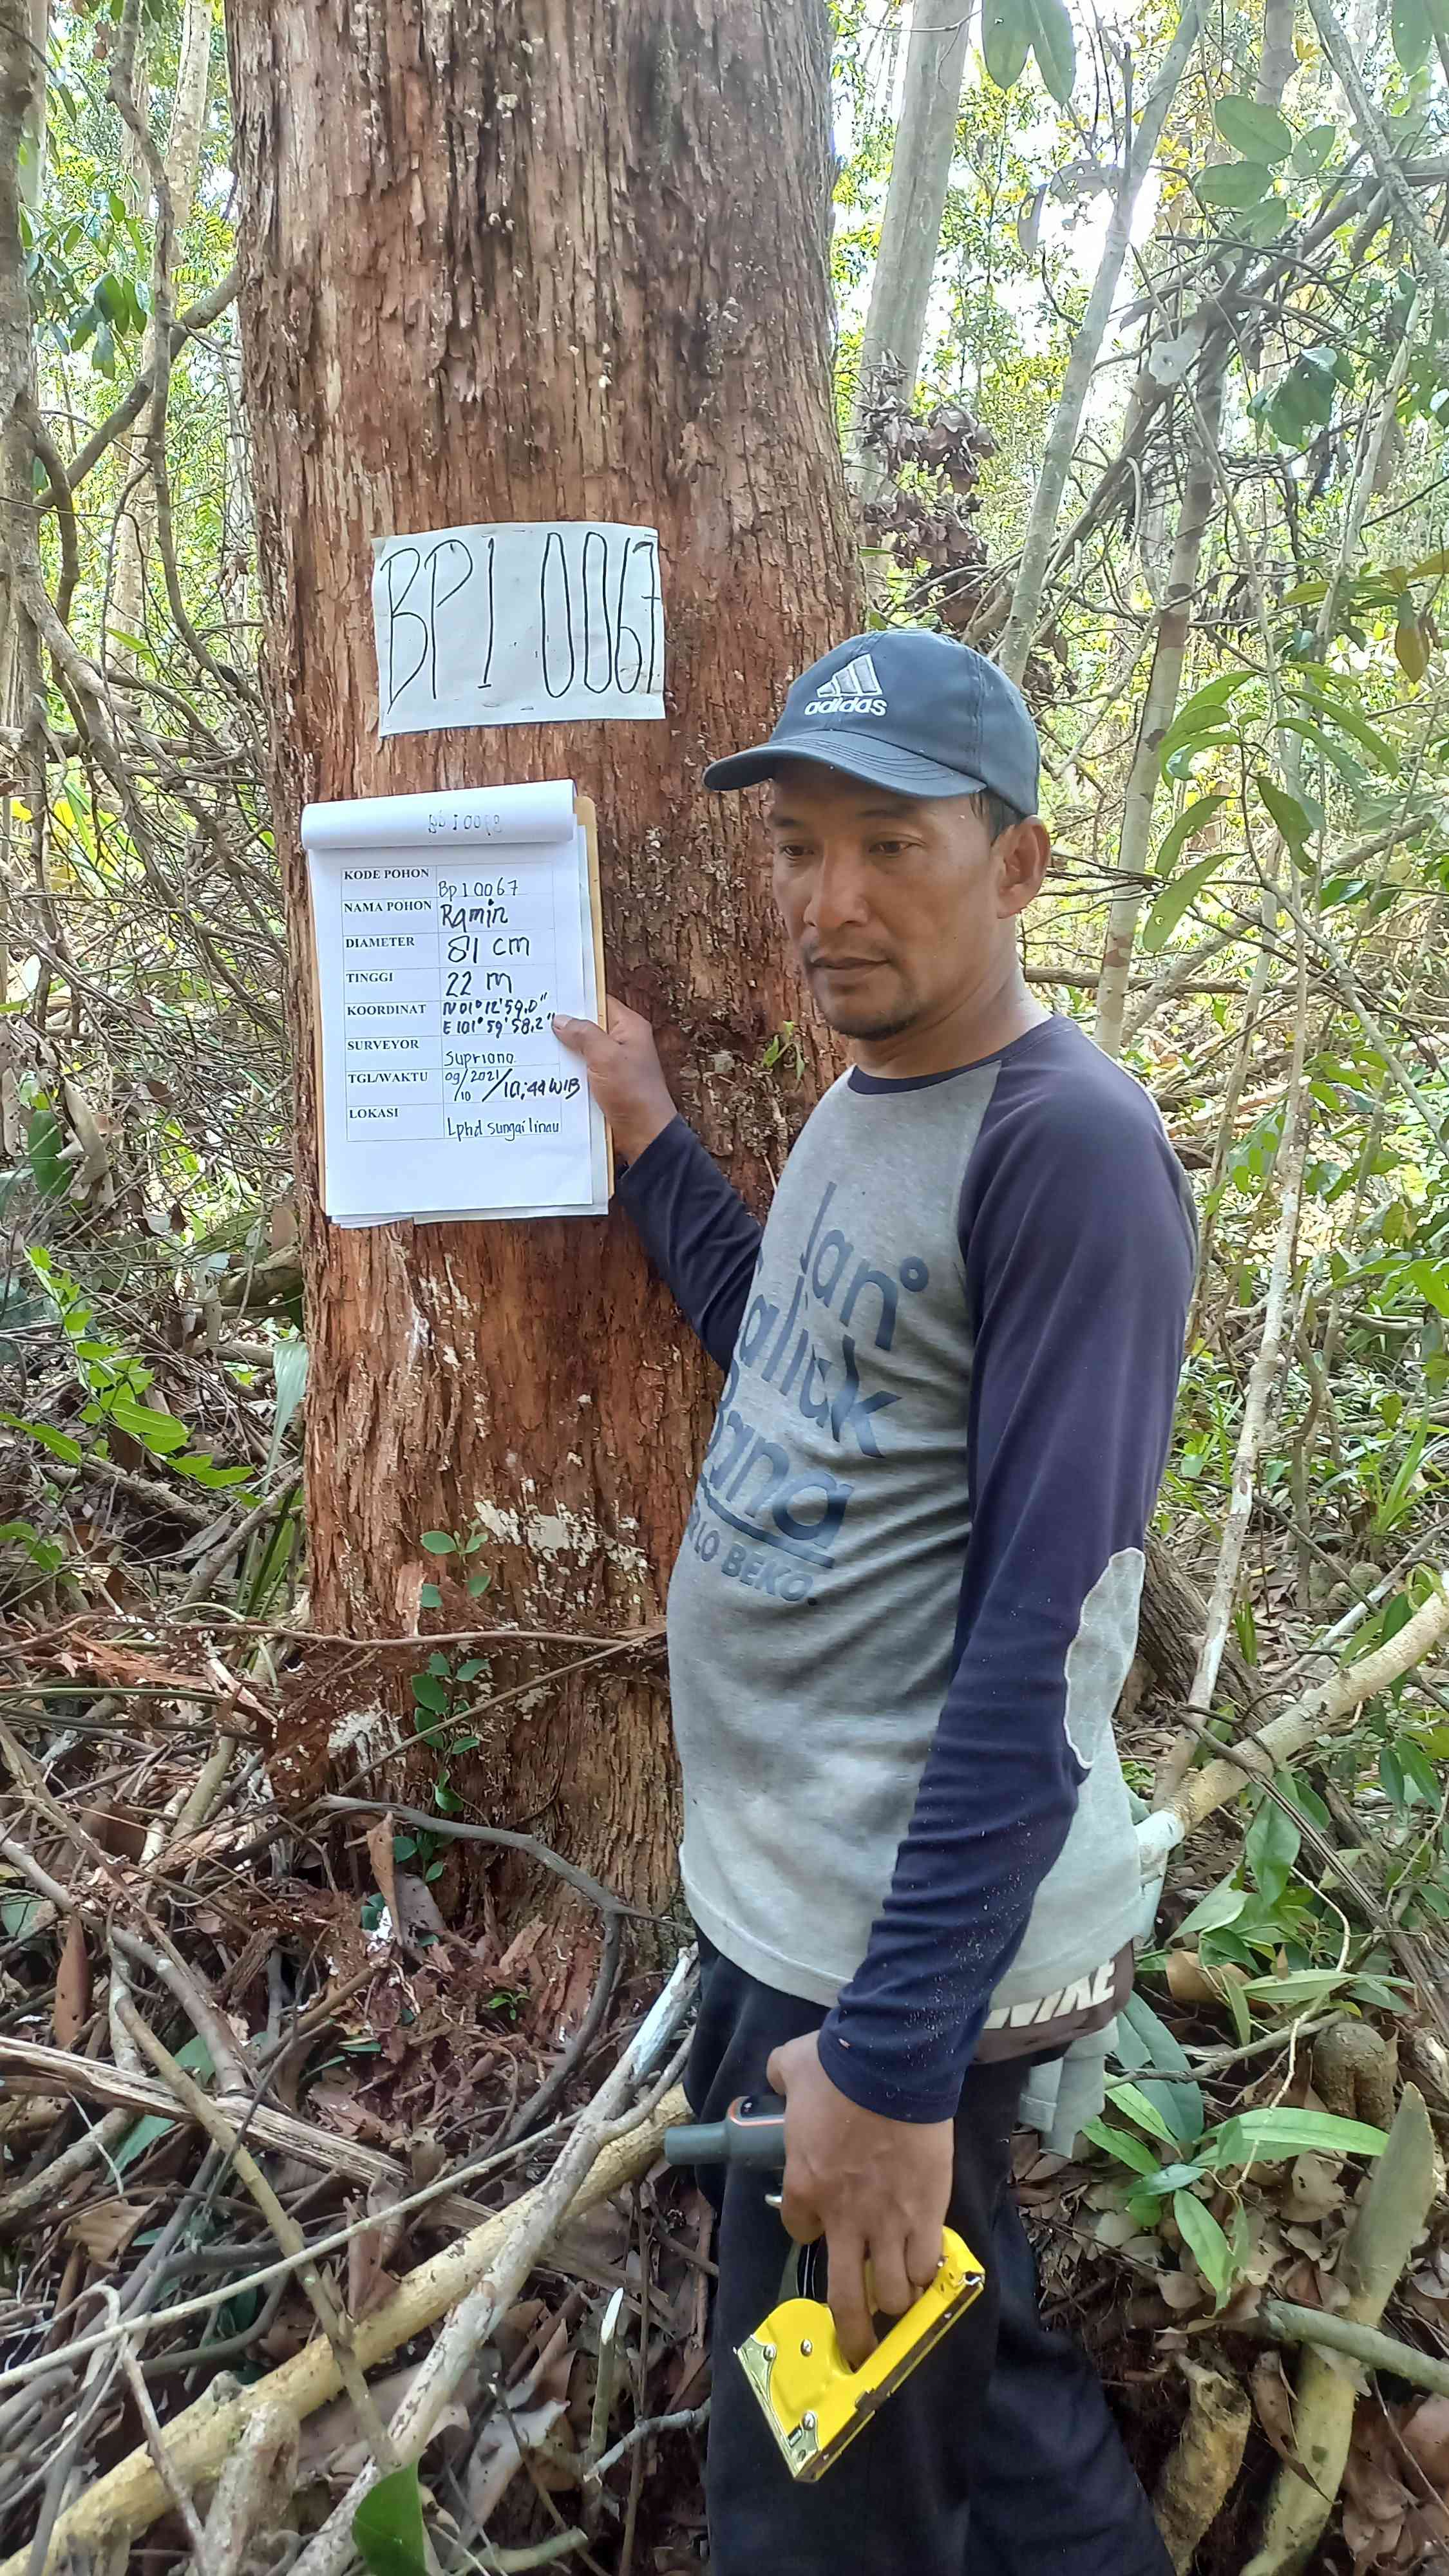 BPI 0067
KODE POHON Bp I 0067
NAMA POHON Ramin
DIAMETER 81 cm
TINGGI 22 m
KOORDINAT N 01° 12' 59,0"
E 101° 59' 58,2"
SURVEYOR Supriono
TGL/WAKTU 09/10/2021/10:44 WIB
LOKASI Lphd Sungai linau
adidas
Jan°
aluk
ana
LO BEKO.
NIKE